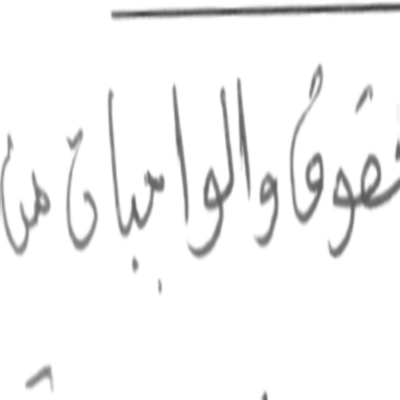 حقوق والواجبات من